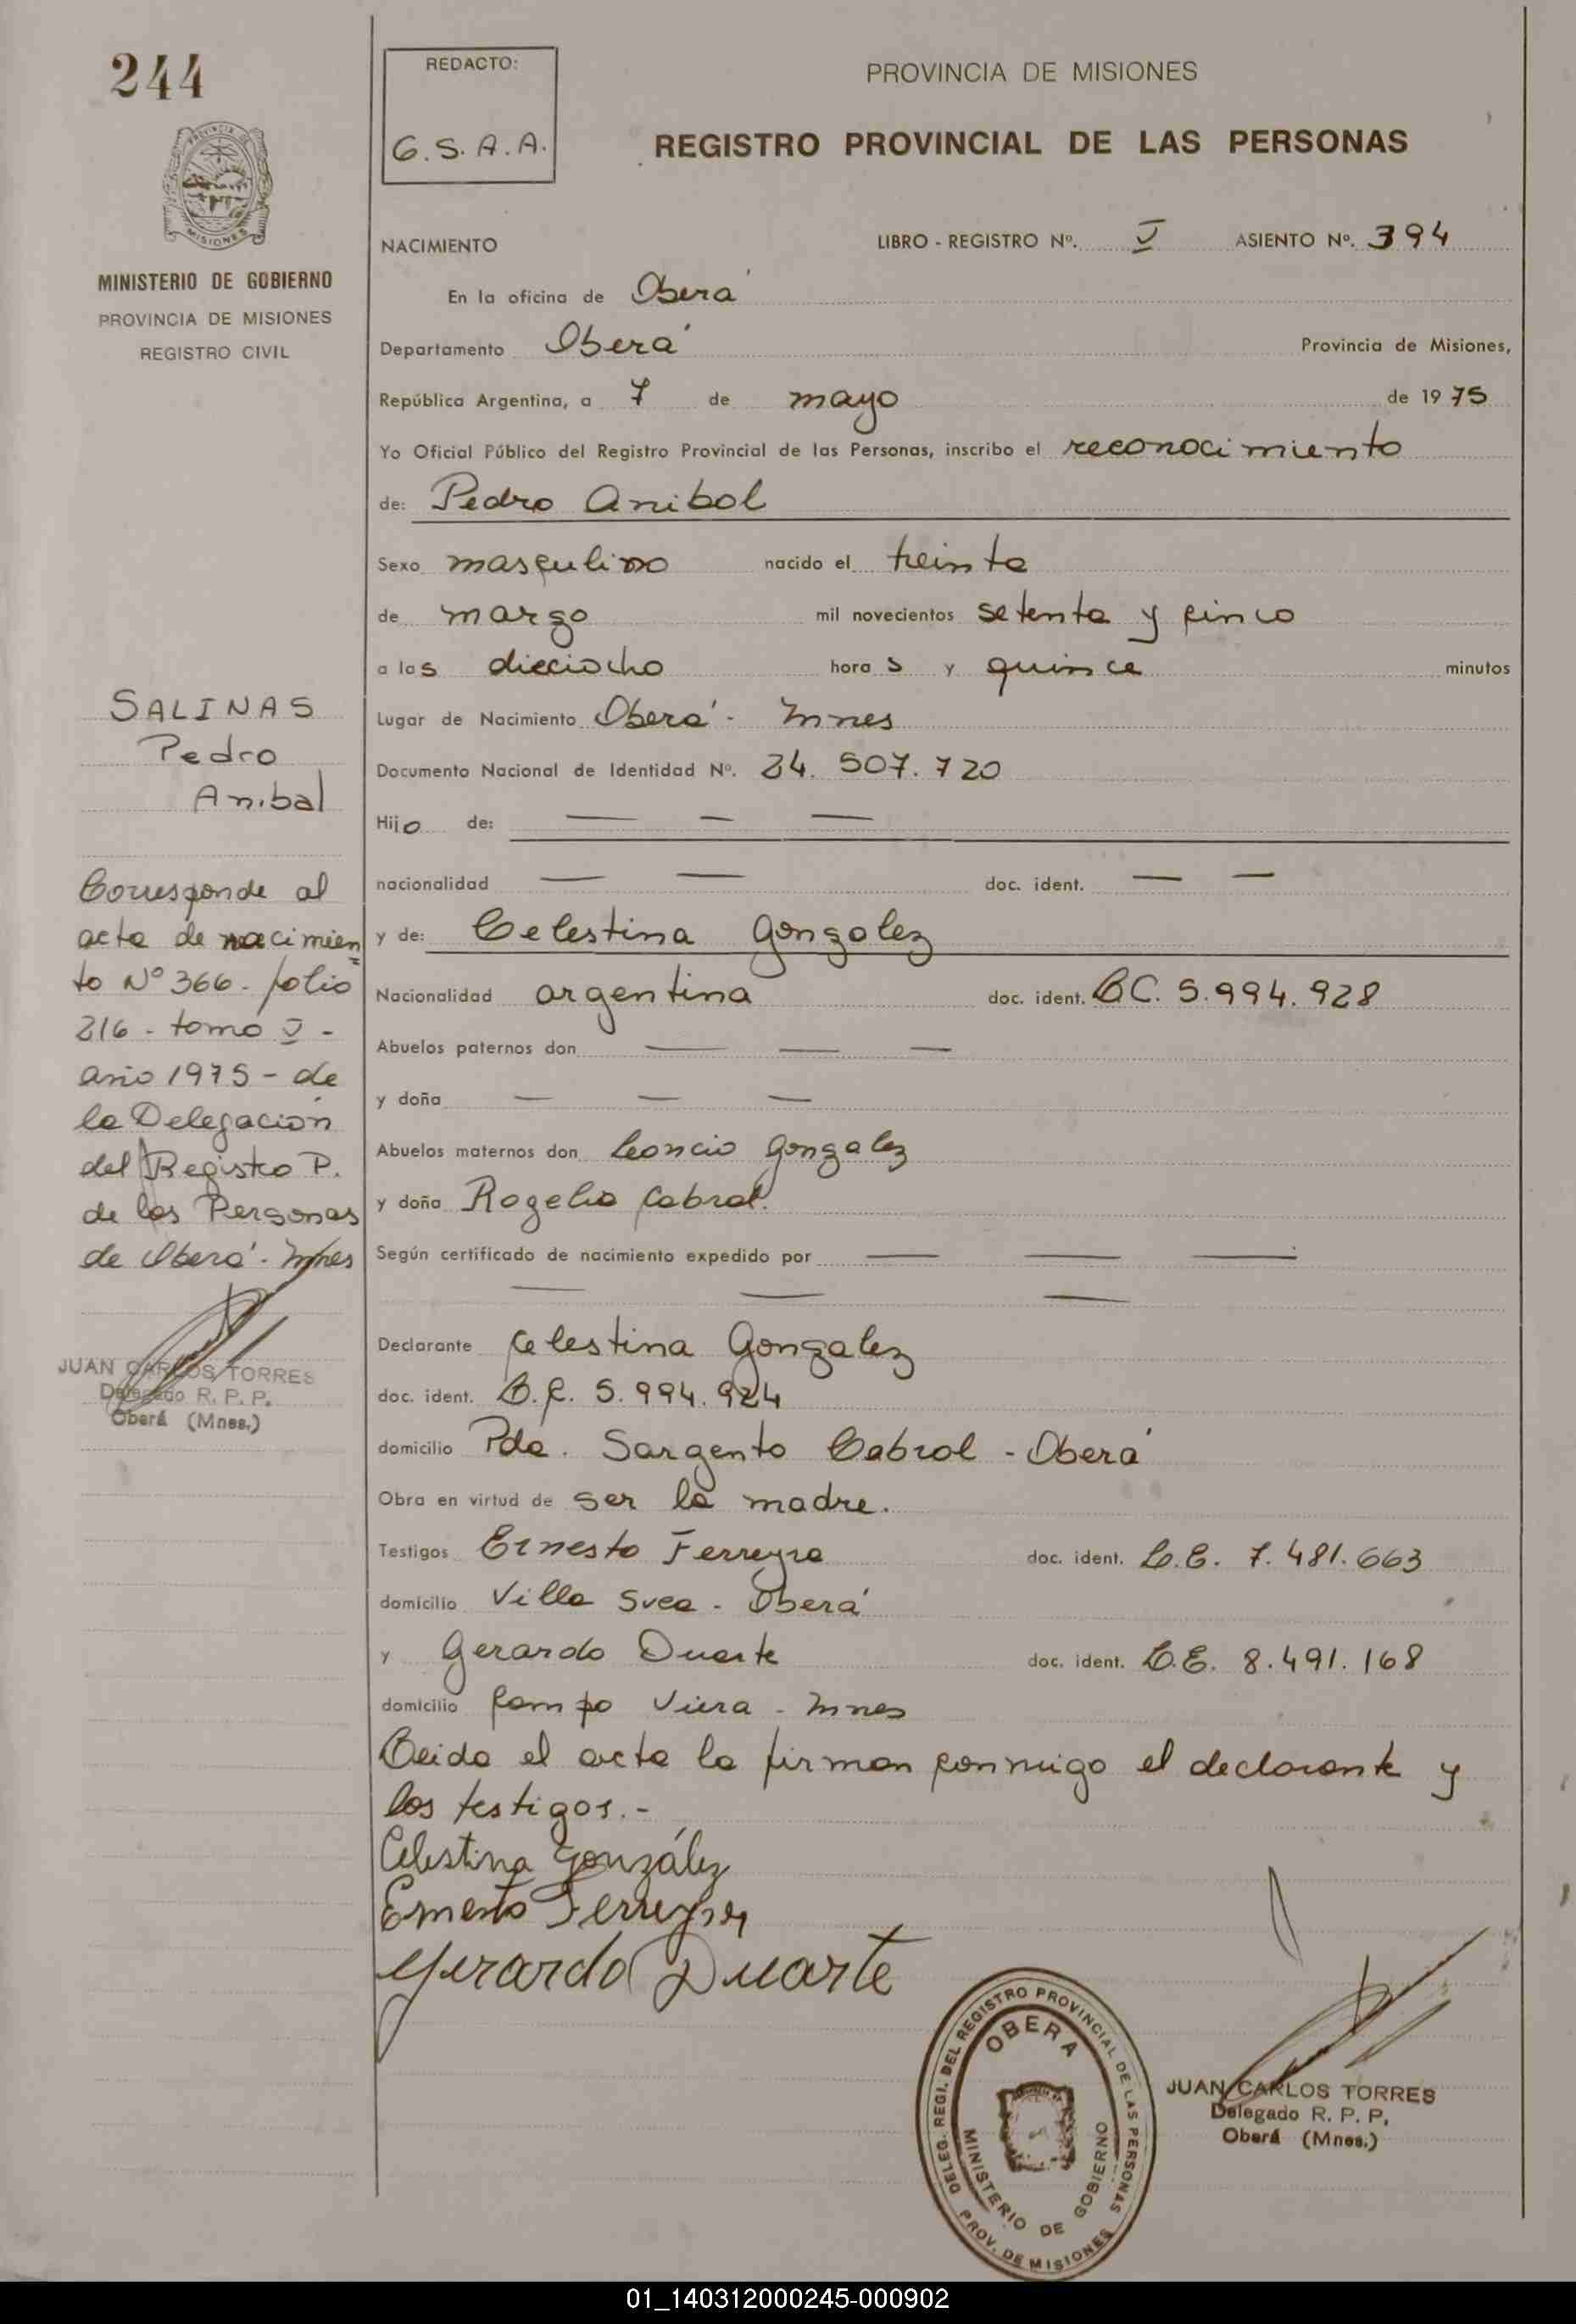 244
REDACTO:
G. S. A. A.
PROVINCIA DE MISIONES
REGISTRO PROVINCIAL DE LAS PERSONAS
MISIONES
MINISTERIO DE GOBIERNO
PROVINCIA DE MISIONES
REGISTRO CIVIL
NACIMIENTO LIBRO - REGISTRO Nº. V ASIENTO Nº. 394
En la oficina de Oberá
Departamento Oberá Provincia de Misiones,
República Argentina, a 7 de mayo de 1975
Yo Oficial Público del Registro Provincial de las Personas, inscribo el reconocimiento
de: Pedro Anibal
Sexo masculino nacido el treinta
de marzo mil novecientos setenta y cinco
a las dieciocho horas y quince minutos
Lugar de Nacimiento Oberá - Mnes
Documento Nacional de Identidad Nº. 24. 507. 720
Hijo de: — — —
nacionalidad — — doc. ident. — —
y de: Celestina Gonzalez
Nacionalidad argentina doc. ident. LC. 5.994.928
Abuelos paternos don — — —
y doña — — —
Abuelos maternos don Leoncio Gonzalez
y doña Rogelia Cabral.
Según certificado de nacimiento expedido por — — —
— — —
Declarante Celestina Gonzalez
doc. ident. L.C. 5.994.924
domicilio Pda. Sargento Cabral - Oberá
Obra en virtud de ser la madre.
Testigos Ernesto Ferreyra doc. ident. L.E. 7.481.663
domicilio Villa Svea - Oberá
y Gerardo Duarte doc. ident. L.E. 8.491.168
domicilio Campo Viera - Mnes
Leida el acta la firman conmigo el declarante y
los testigos.-
Celestina González
Ernesto Ferreyra
Gerardo Duarte
SALINAS
Pedro
Anibal
Corresponde al
acta de nacimien
to Nº 366 - folio
216 - tomo V -
año 1975 - de
la Delegación
del Registro P.
de las Personas
de Oberá - Mnes
JUAN CARLOS TORRES
Delegado R. P. P.
Oberá (Mnes.)
DELEG. REGI. DEL REGISTRO PROVINCIAL DE LAS PERSONAS
OBERA
MINISTERIO DE GOBIERNO
PROV. DE MISIONES
JUAN CARLOS TORRES
Delegado R. P. P.
Oberá (Mnes.)
01_140312000245-000902